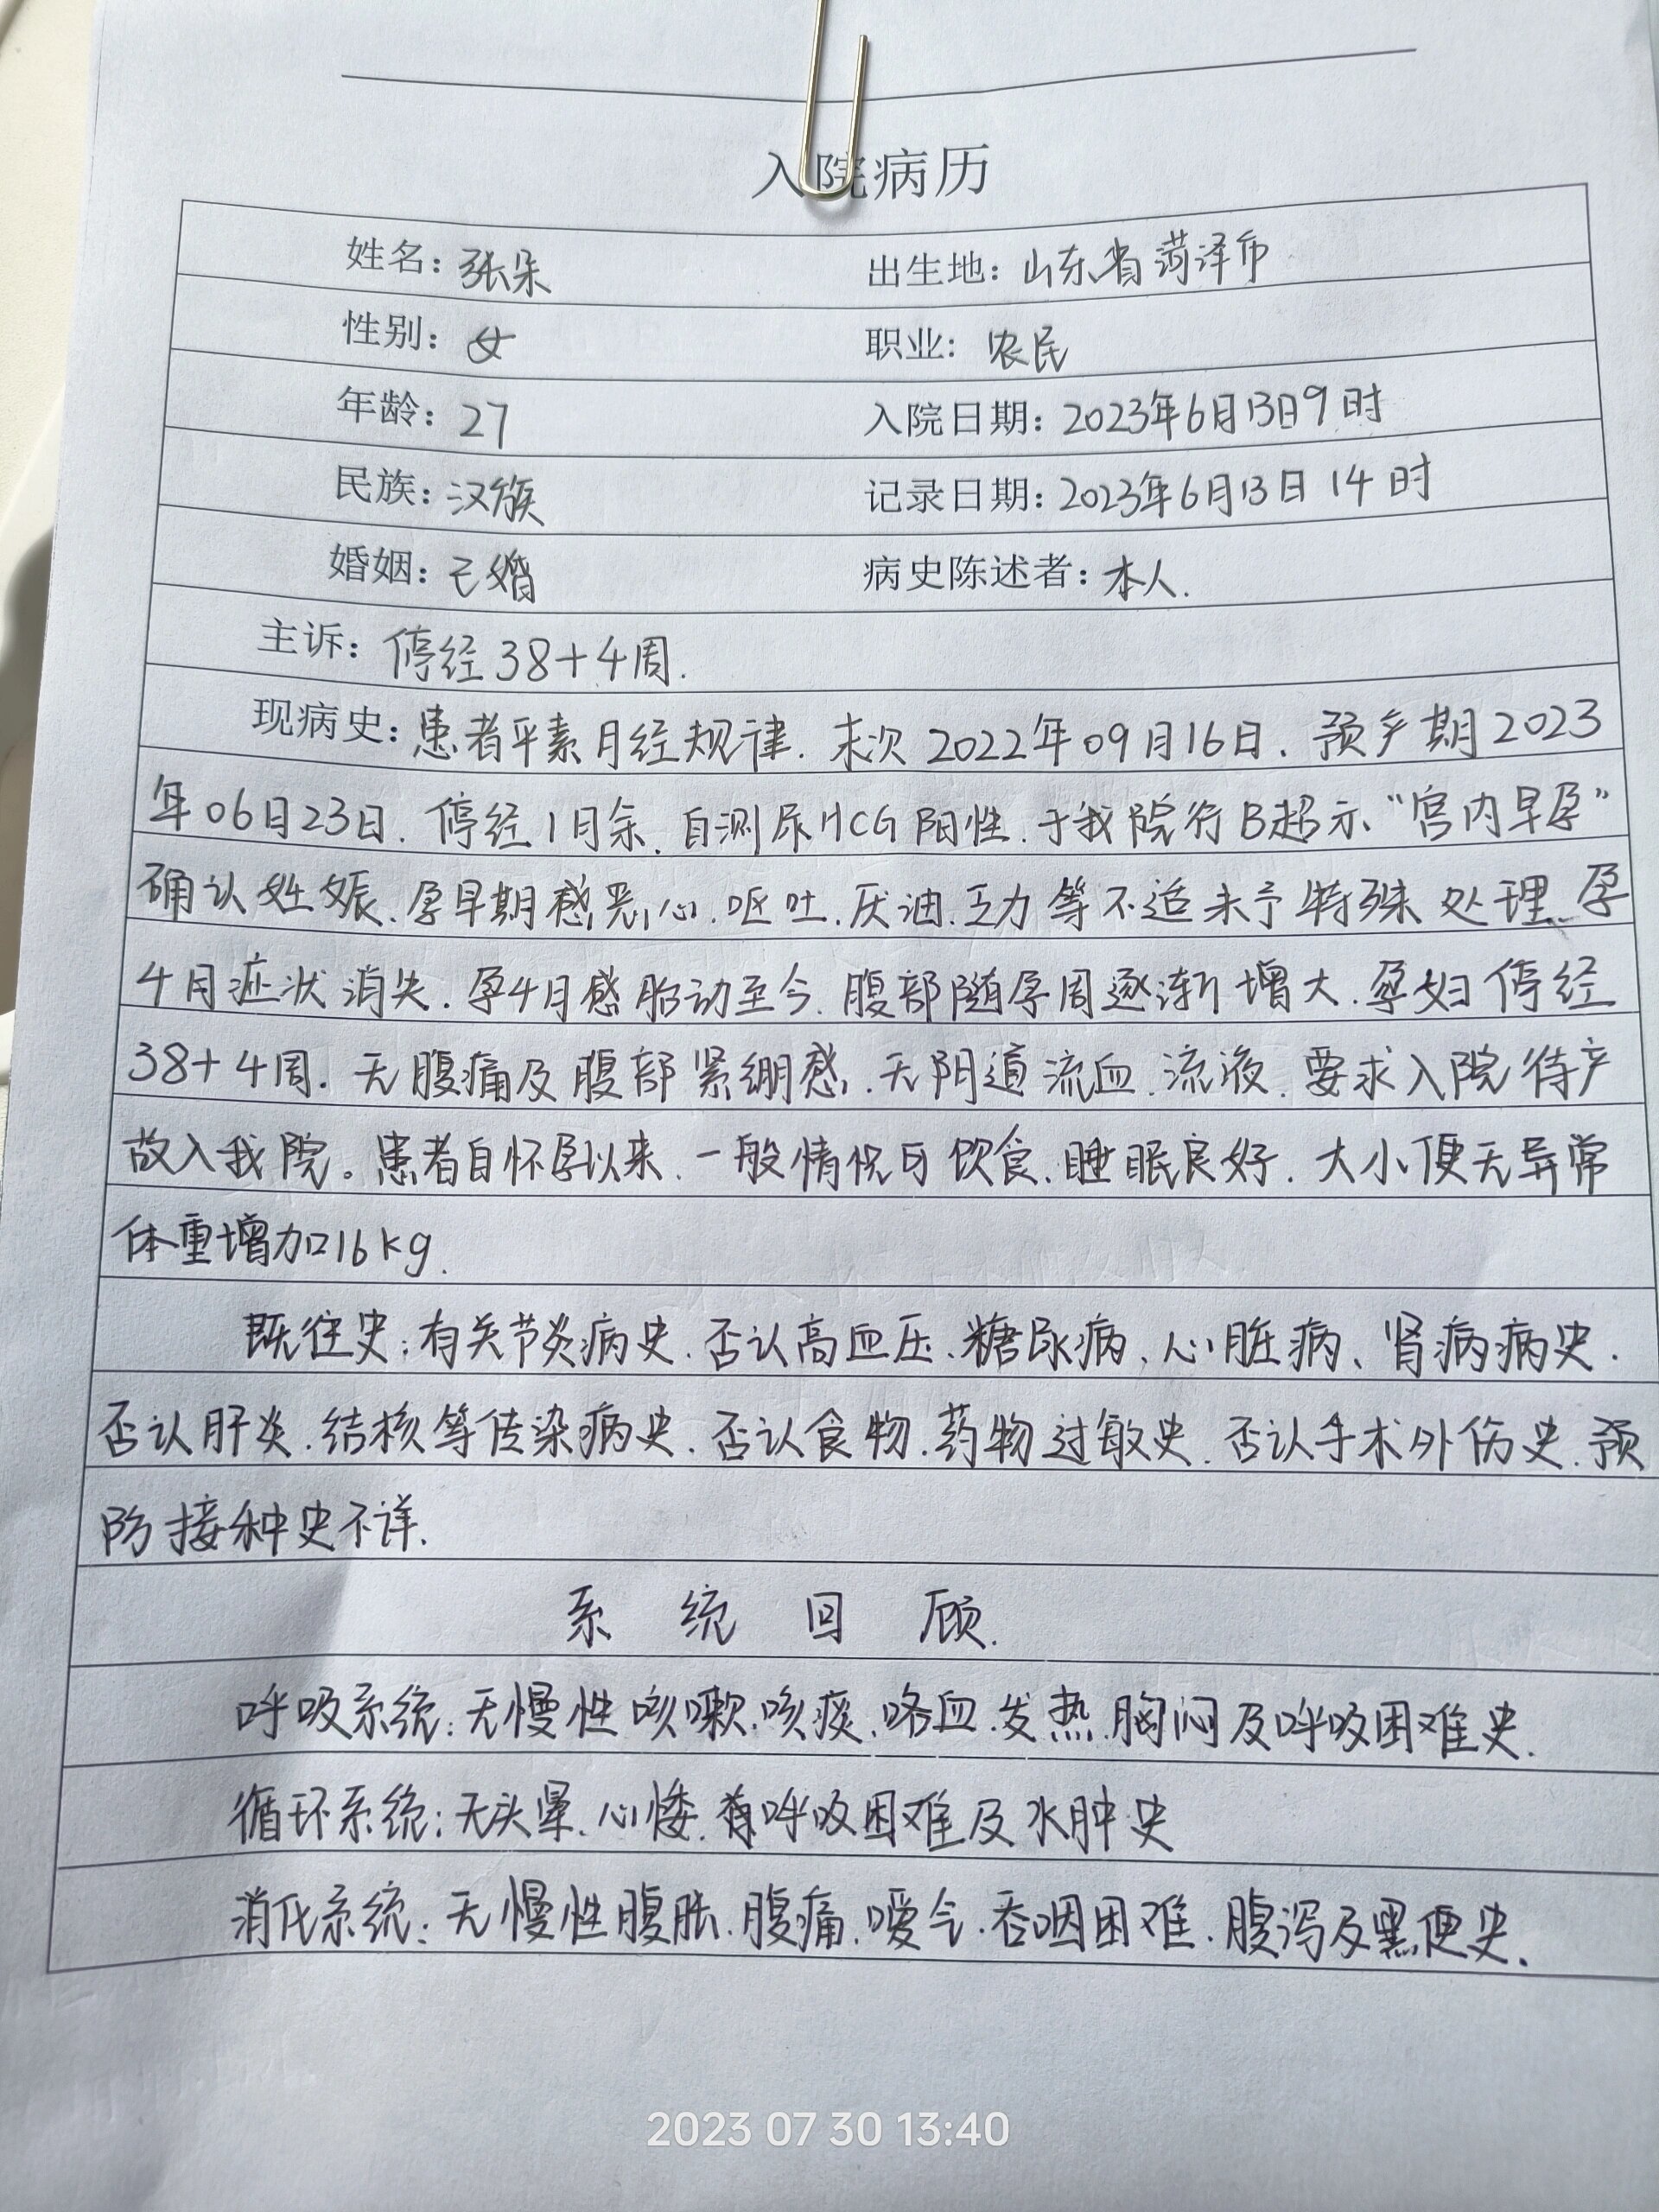 入院病历
姓名：张朵 出生地：山东省菏泽市
性别：女 职业：农民
年龄：27 入院日期：2023年6月13日9时
民族：汉族 记录日期：2023年6月13日14时
婚姻：已婚 病史陈述者：本人.
主诉：停经38+4周.
现病史：患者平素月经规律.末次2022年09月16日.预产期2023
年06日23日.停经1月余.自测尿HCG阳性.于我院行B超示“宫内早孕”
确认妊娠.孕早期感恶心.呕吐.厌油.乏力等不适未予特殊处理.孕
4月症状消失.孕4月感胎动至今.腹部随孕周逐渐增大.孕妇停经
38+4周.无腹痛及腹部紧绷感.无阴道流血.流液.要求入院待产
故入我院。患者自怀孕以来.一般情况可饮食.睡眠良好.大小便无异常
体重增加16kg.
既往史：有关节炎病史.否认高血压.糖尿病、心脏病、肾病病史.
否认肝炎.结核等传染病史.否认食物.药物过敏史.否认手术外伤史.预
防接种史不详.
系统回顾.
呼吸系统：无慢性咳嗽.咳痰.咯血.发热.胸闷及呼吸困难史.
循环系统：无头晕.心悸.呼吸困难及水肿史
消化系统：无慢性腹胀.腹痛.嗳气.吞咽困难.腹泻及黑便史.
2023 07 30 13:40